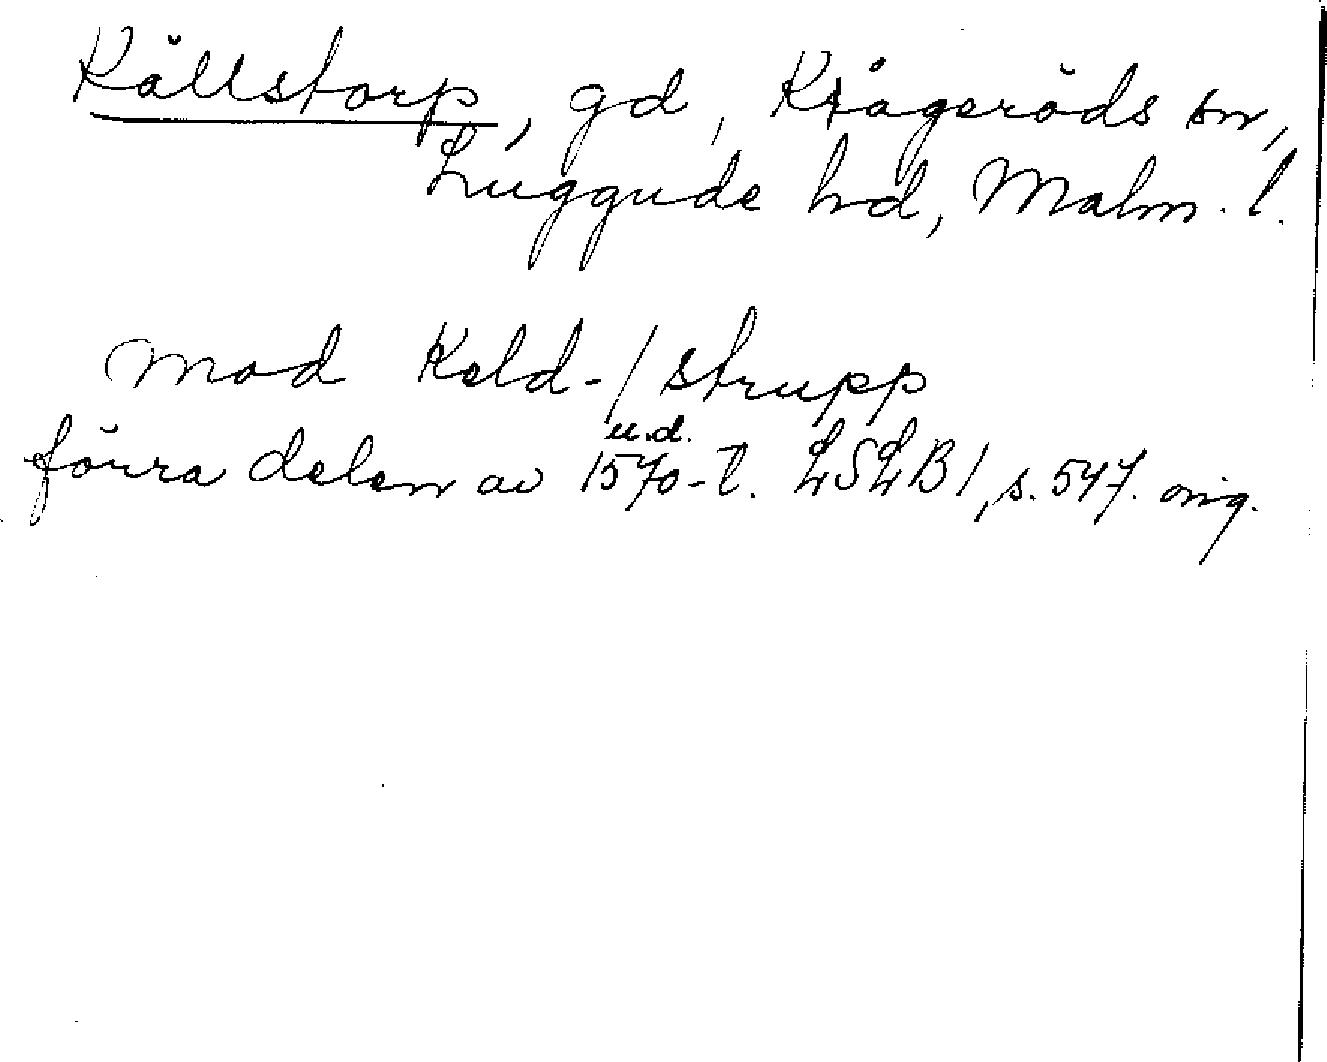 Källstorp, gd, Kågeröds sn,
Luggude hd, Malm. l.
mod Keld-/strupp
u.d.
förra delen av 1570-t. LSLB1, s. 547. orig.